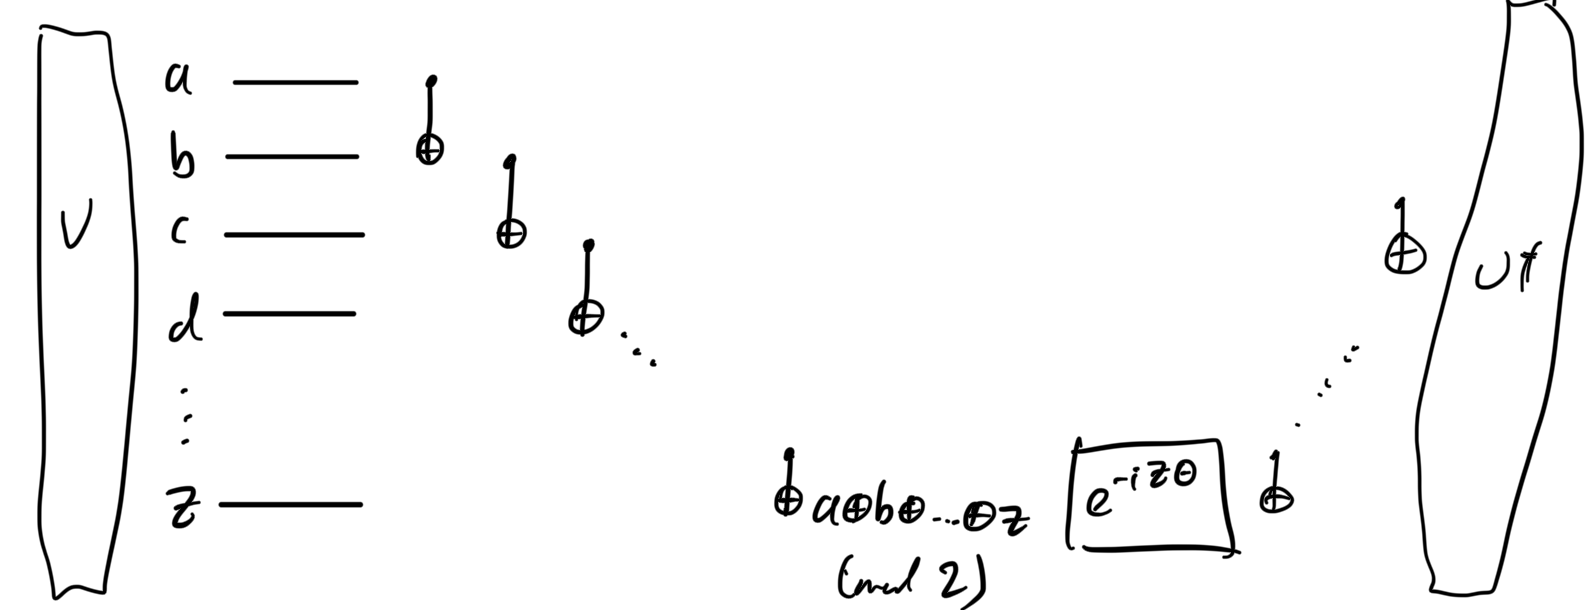 a
b
U
c
d
z
a⊕b⊕...⊕z
(mod 2)
e^{-iZθ}
U†